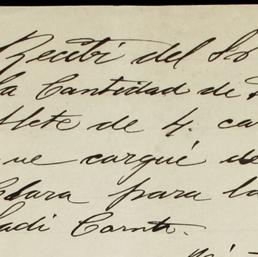 Recibí del Sr
la Cantidad de
flete de 4. ca
que cargué de
Clara para la
Cadi Camt.